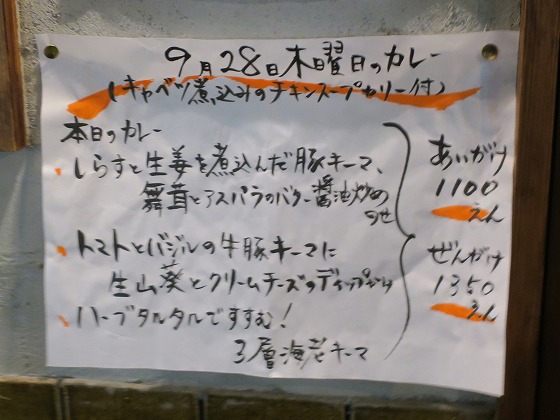 9月28日木曜日のカレー
(キャベツ煮込みのチキンスープゼリー付)
本日のカレー
しらすと生姜を煮込んだ豚キーマ、
舞茸とアスパラのバター醤油炒め
のせ
トマトとバジルの牛豚キーマに
生山葵とクリームチーズのディップがけ
ハーブタルタルですすむ!
3層海老キーマ
あいがけ
1100
えん
ぜんがけ
1350
えん